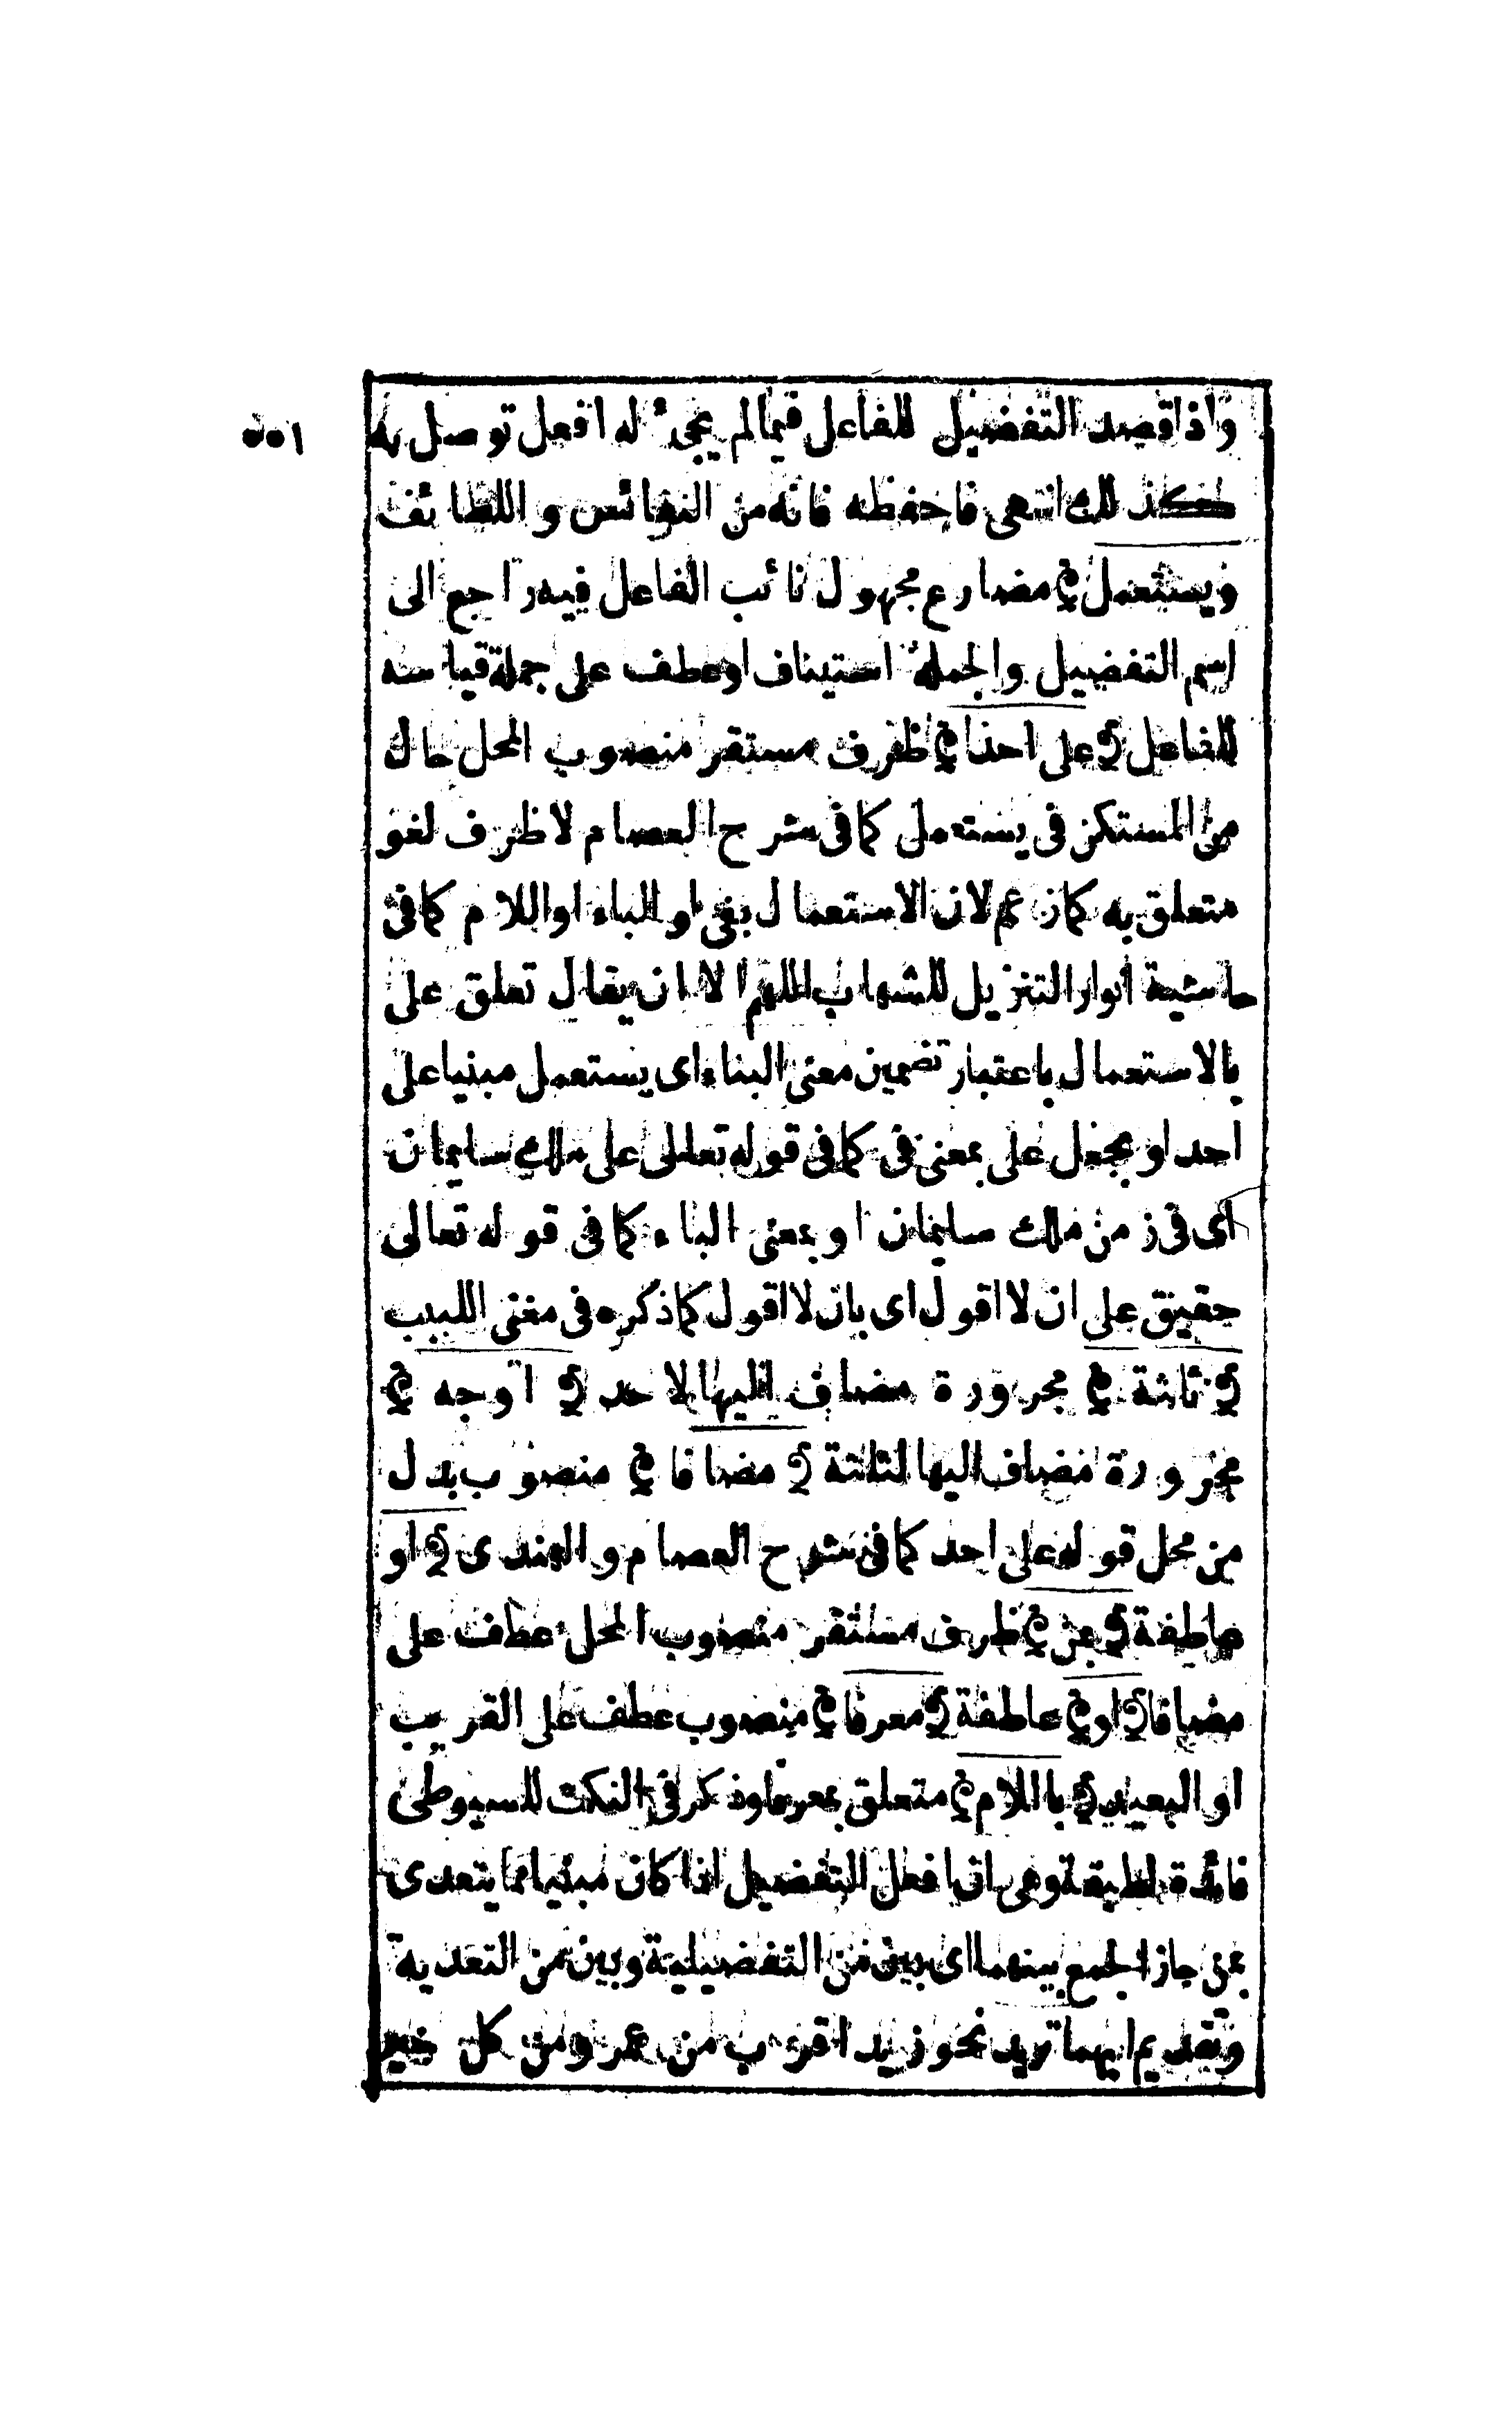 واذا قصد التفضيل للفاعل فيما لم يجئ له افعل توصل به
كذلك انتهى فاحفظه فانه من النفائس واللطائف
ويستعمل مضارع مجهول نائب الفاعل فيه راجع الى
اسم التفضيل والجملة استيناف او عطف على جملة قياسه
للفاعل على احد ظرف مستقر منصوب المحل حال
من المستكن فى يستعمل كما فى شرح العصام لا ظرف لغو
متعلق به كما زعم لان الاستعمال بفى او الباء او اللام كما فى
حاشية انوار التنزيل للشهاب اللهم الا ان يقال تعلق على
بالاستعمال باعتبار تضمين معنى البناء اى يستعمل مبنيا على
احد او يجعل على بمعنى فى كما فى قوله تعالى على ملك سليمان
اى فى زمن ملك سليمان او بمعنى الباء كما فى قوله تعالى
حقيق على ان لا اقول اى بان لا اقول كما ذكره فى مغنى اللبيب
ثلثة مجرورة مضاف اليها لاحد اوجه
مجرورة مضاف اليها لثلثة مضافا منصوب بدل
من محل قوله على احد كما فى شرح العصام والهندى او
عاطفة بمن ظرف مستقر منصوب المحل عطف على
مضافا او عاطفة معرفا منصوب عطف على القريب
او البعيد باللام متعلق بمعرفا وذكر فى النكت للسيوطى
فائدة لطيفة وهى ان افعل التفضيل اذا كان مبنيا مما يتعدى
بمن جاز الجمع بينهما اى بين من التفضيلية وبين من التعدية
وتقديم ايهما تريد نحو زيد اقرب من عمرو من كل خير